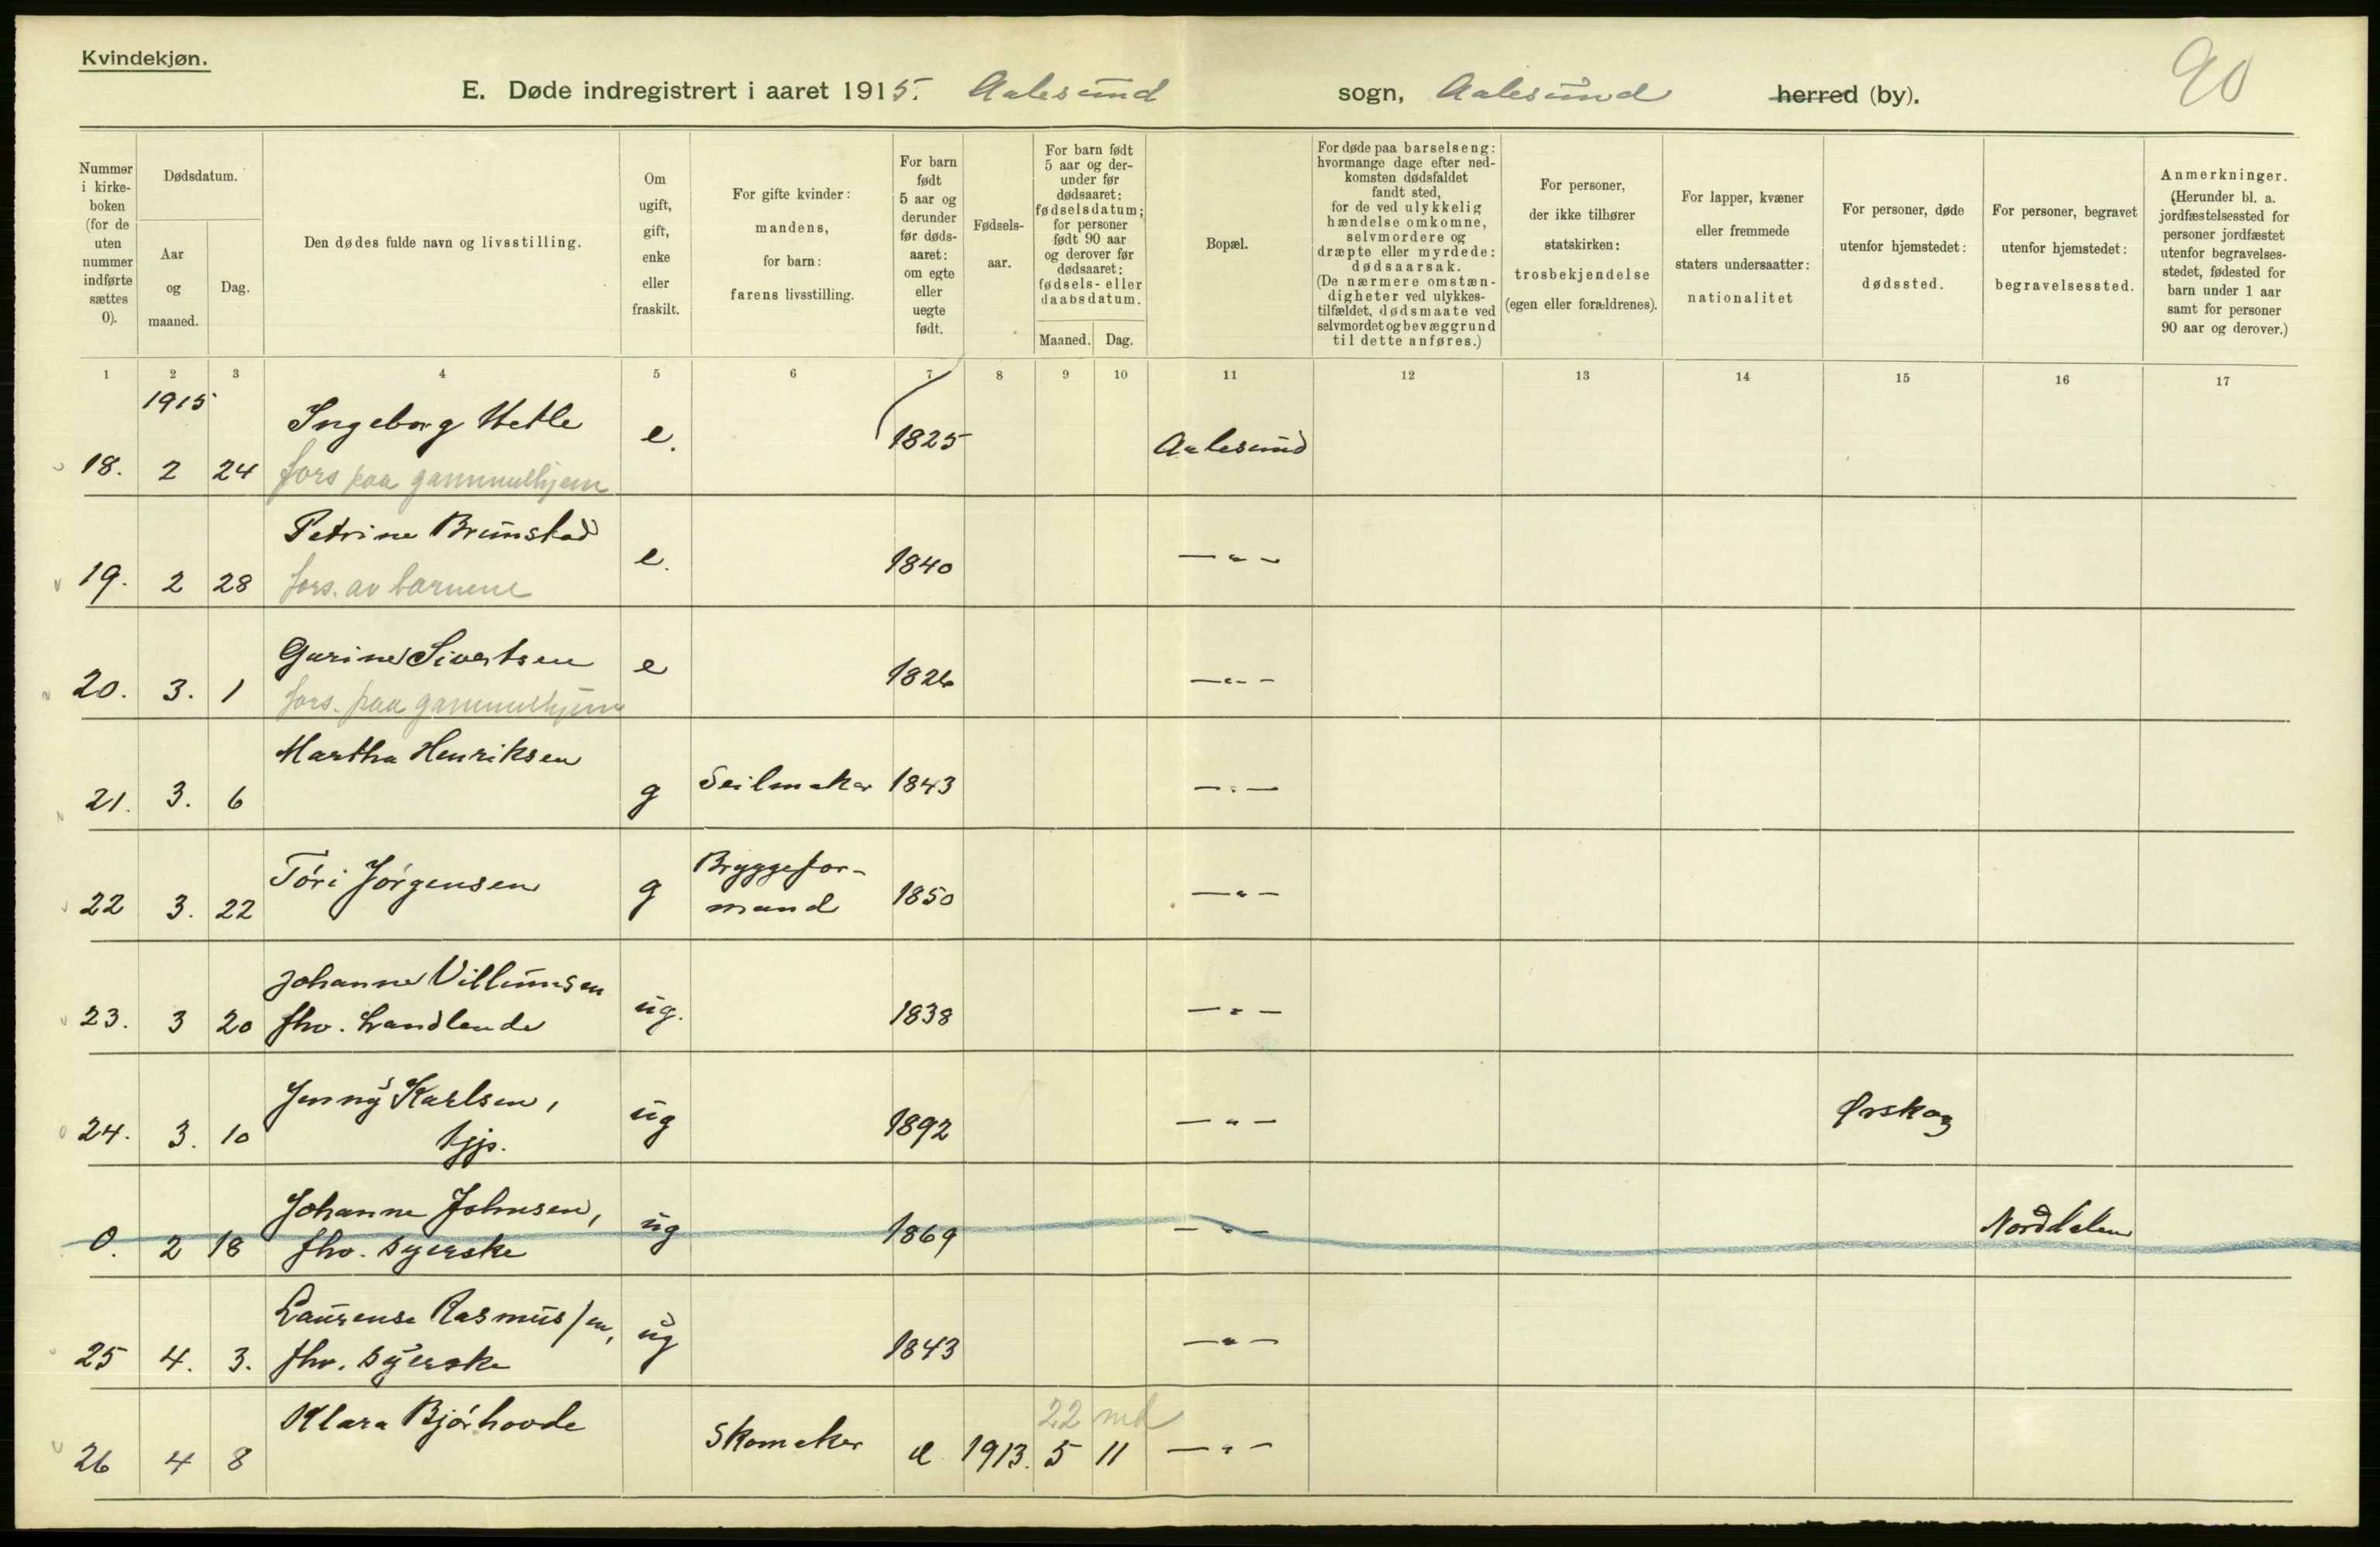 Kvindekjøn.
90
E. Døde indregistrert i aaret 1915. Aalesund sogn, Aalesund herred (by).
Nummer i kirkeboken (for de uten nummer indførte sættes 0).
Dødsdatum.
Aar og maaned.
Dag.
Den dødes fulde navn og livsstilling.
Om ugift, gift, enke eller fraskilt.
For gifte kvinder: mandens, for barn: farens livsstilling.
For barn født 5 aar og derunder før dødsaaret: om egte eller uegte født.
Fødselsaar.
For barn født 5 aar og derunder før dødsaaret: fødselsdatum; for personer født 90 aar og derover før dødsaaret: fødsels- eller daabsdatum.
Maaned. Dag.
Bopæl.
For døde paa barselseng: hvormange dage efter nedkomsten dødsfaldet fandt sted, for de ved ulykkelig hændelse omkomne, selvmordere og dræpte eller myrdede: dødsaarsak. (De nærmere omstændigheter ved ulykkestilfældet, dødsmaate ved selvmordet og bevæggrund til dette anføres.)
For personer, der ikke tilhører statskirken: trosbekjendelse (egen eller forældrenes).
For lapper, kvæner eller fremmede staters undersaatter: nationalitet
For personer, døde utenfor hjemstedet: dødssted.
For personer, begravet utenfor hjemstedet: begravelsessted.
Anmerkninger. (Herunder bl. a. jordfæstelsessted for personer jordfæstet utenfor begravelsesstedet, fødested for barn under 1 aar samt for personer 90 aar og derover.)
1 2 3 4 5 6 7 8 9 10 11 12 13 14 15 16 17
1915
18. 2 24 Ingeborg Hetle e. 1825 Aalesund
fors paa gammelhjem
19. 2 28 Petrine Brunstad e. 1840 —"—
fors. av barnene
20. 3. 1 Gurine Sivertsen e 1826 —"—
fors. paa gammelhjem
21. 3. 6 Martha Henriksen g Seilmaker 1843 —"—
22 3. 22 Tóri Jórgensen g Bryggeformand 1850 —"—
23. 3 20 Johanne Villumsen ug. 1838 —"—
fhv. handlende
24. 3. 10 Jenny Karlsen, ug 1892 —"— Ørskog
tjp.
0. 2 18 Johanne Johnsen, ug 1869 —"— Norddalen
fhv. syerske
25 4. 3. Laurense Rasmus/en, ug 1843 —"—
fhv. syerske
22 md
26 4 8 Klara Bjórhovde Skomaker e 1913. 5 11 —"—